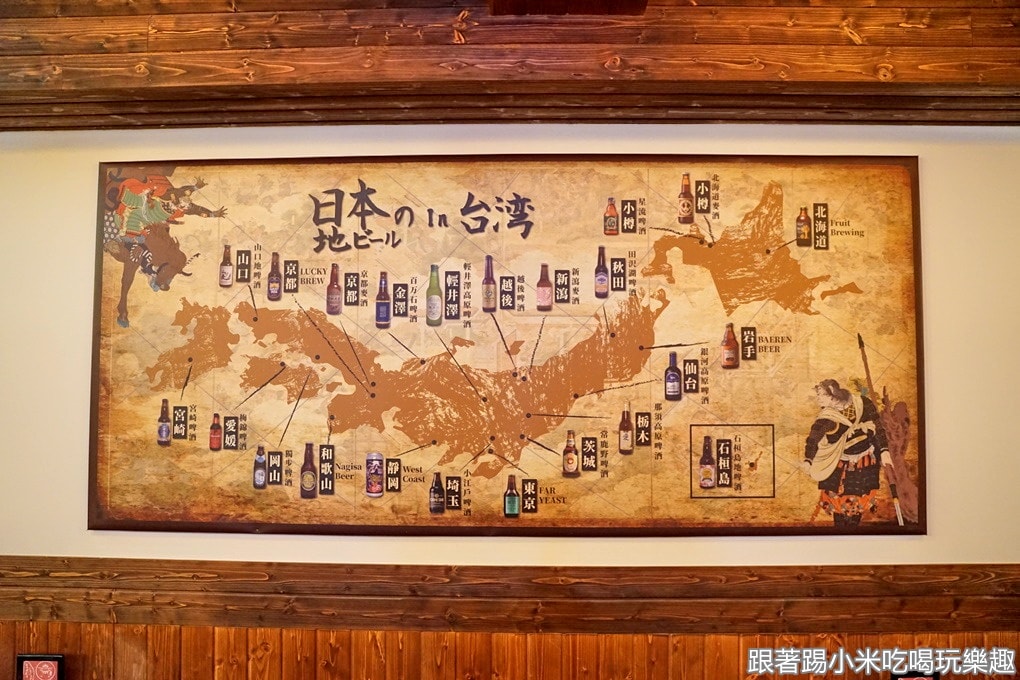 日本の
地ビール
In 台湾
山口
山口地啤酒
京都
LUCKY
BREW
京都
京都麥酒
金澤
百万石啤酒
輕井澤
輕井澤高原啤酒
越後
越後啤酒
新瀉
新瀉麥酒
秋田
田沢湖啤酒
小樽
星流啤酒
小樽
北海道麥酒
北海道
Fruit
Brewing
岩手
BAEREN
BEER
仙台
銀河高原啤酒
栃木
那須高原啤酒
茨城
常鹿野啤酒
東京
FAR
YEAST
埼玉
小江戶啤酒
靜岡
West
Coast
和歌山
Nagisa
Beer
岡山
獨步啤酒
愛媛
梅錦啤酒
宮崎
宮崎啤酒
石垣島
石垣島地啤酒
跟著踢小米吃喝玩樂趣